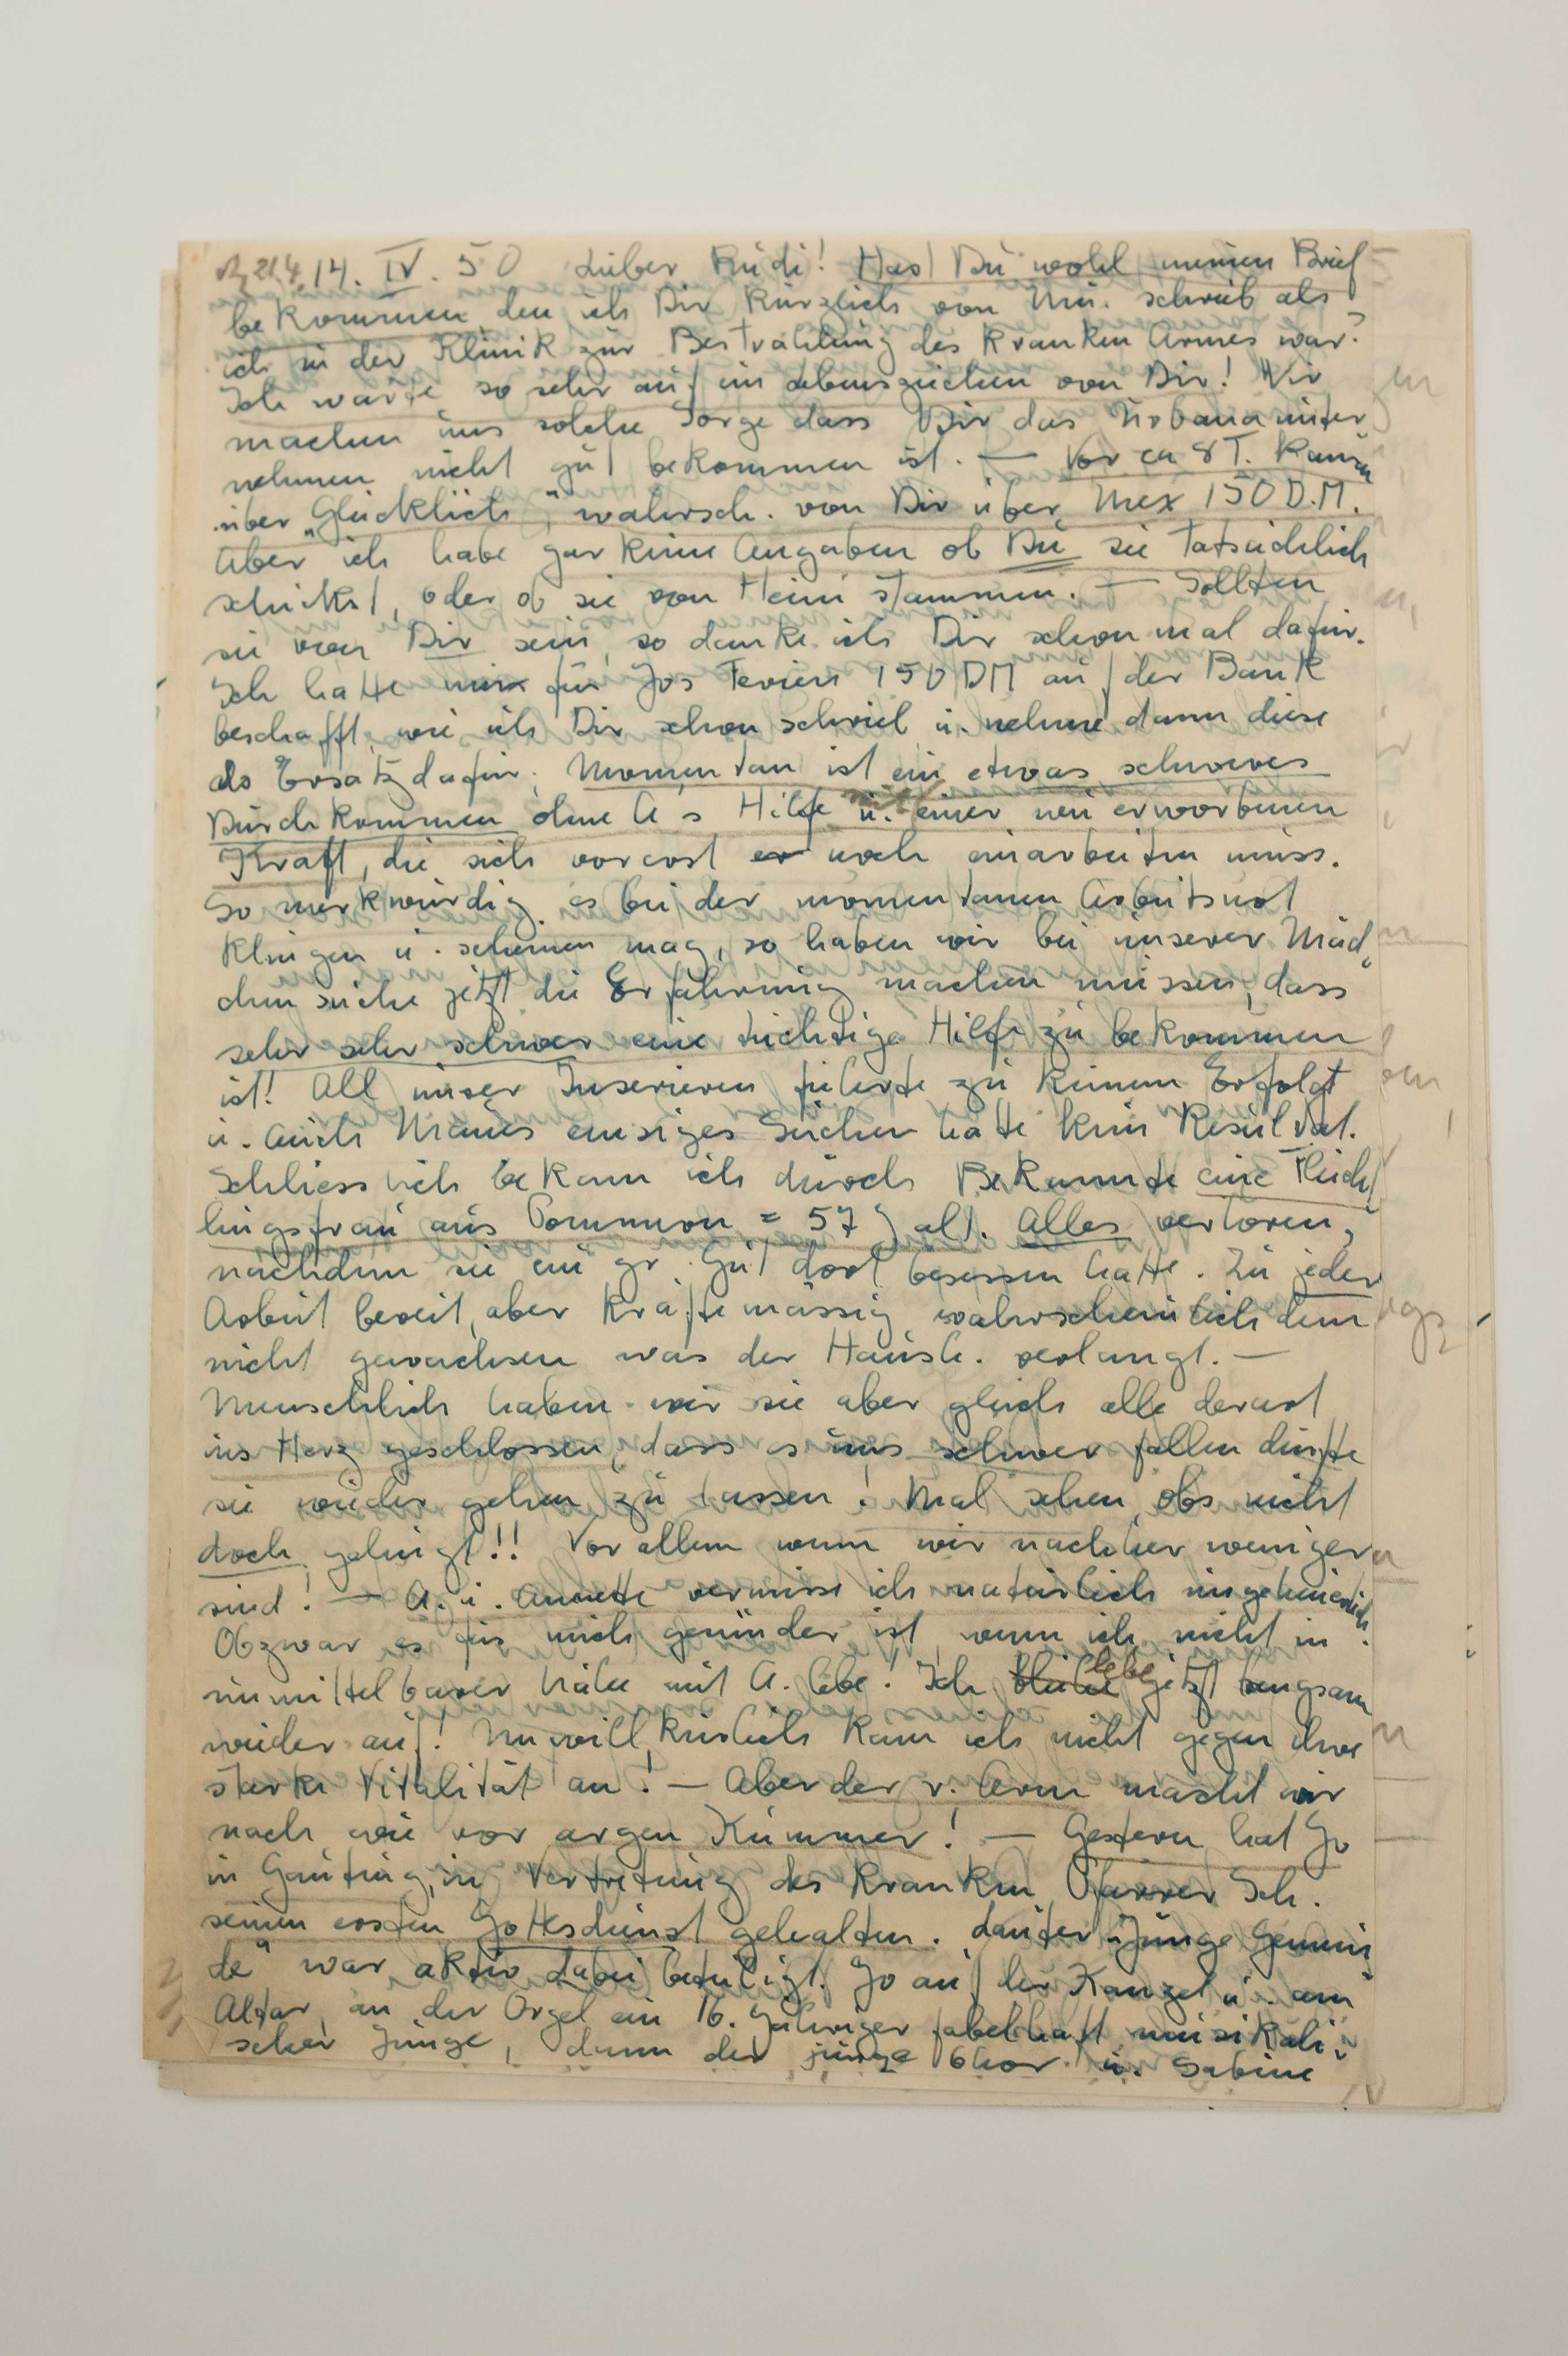 21.4. 14. IV. 50 Lieber Rudi! Hast Du wohl meinen Brief
bekommen den ich Dir kürzlich von Mü. schrieb als
ich in der Klinik zur Bestrahlung des kranken Armes war?
Ich warte so sehr auf ein Lebenszeichen von Dir! Wir
machen uns solche Sorge dass Dir das Urbana unter
nehmen nicht gut bekommen ist. — Vor ca 8 T. kamen
über „Glücklich", wahrsch. von Dir über Mex 150 D.M.
Aber ich habe gar keine Angaben ob Du sie tatsächlich
schickst, oder ob sie von Heini stammen. — Sollten
sie von Dir sein, so danke ich Dir schon mal dafür.
Ich hatte mir für Jos Ferien 150 DM auf der Bank
beschafft, wie ich Dir schon schrieb u. nehme dann diese
als Ersatz dafür. Momentan ist ein etwas schweres
Durchkommen ohne A's Hilfe u. einer neu erworbenen
Kraft, die sich vorerst er noch einarbeiten muss.
So merkwürdig es bei der momentanen Arbeitsnot
klingen u. scheinen mag, so haben wir bei unserer Mäd-
chensuche jetzt die Erfahrung machen müssen, dass
sehr sehr schwer eine tüchtige Hilfe zu bekommen
ist! All unser Inserieren führte zu keinem Erfolgt
u. auch Mau's emsiges Suchen hatte kein Resultat.
Schliesslich bekam ich durch Bekannte eine Flücht
lingsfrau aus Pommern = 57 J alt. Alles verloren,
nachdem sie ein gr. Gut dort besessen hatte. Zu jeder
Arbeit bereit, aber kräftemässig wahrscheinlich dem
nicht gewachsen was der Haush. verlangt. —
Menschlich haben wir sie aber gleich alle derart
ins Herz geschlossen, dass es uns schwer fallen dürfte
sie wieder gehen zu lassen! Mal sehen, obs nicht
doch gelingt!! Vor allem wenn wir nachher weniger
sind! — A. u. Annette vermisse ich natürlich ungeheuerlich.
Obzwar es für mich gesünder ist, wenn ich nicht in
unmittelbarer Nähe mit A. lebe! Ich lebe jetzt langsam
wieder auf! Unwillkürlich kann ich nicht gegen ihre
starke Vitalität an! — Aber der r. Arm macht mir
nach wie vor argen Kummer! — Gestern hat Jo
in Gauting, in Vertretung des kranken Pfarrer Sch.
seinen ersten Gottesdienst gehalten. Lauter „junge Gemein
de" war aktiv dabei beteiligt. Jo auf der Kanzel u. am
Altar, an der Orgel ein 16. jähriger fabelhaft musikali-
scher Junge, dann der junge Chor u. Sabine